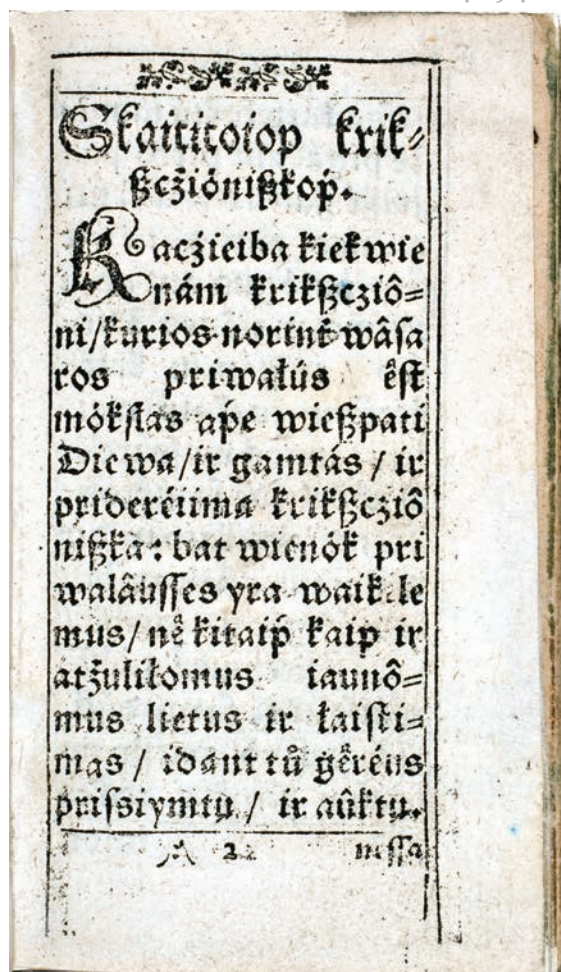 Skaititoiop krik⸗
ßcżiónißkoṗ.
Kacżieiba kiekwie
nám krikßcziô⸗
ni/kurios norint wâsa
ros priwałús êst
mókslas aṗe wießpati
Diewa/ir gamtás / ir
prideréiima krikßcziô
nißka: bat wienók pri
walâusses yra waikele
mus/nê kitaiṗ kaip ir
atżulikomus iaunô⸗
mus lietus ir łaisti⸗
mas / idant tů gêréus
prissiymtų / ir aûktų.
A 2 nessa